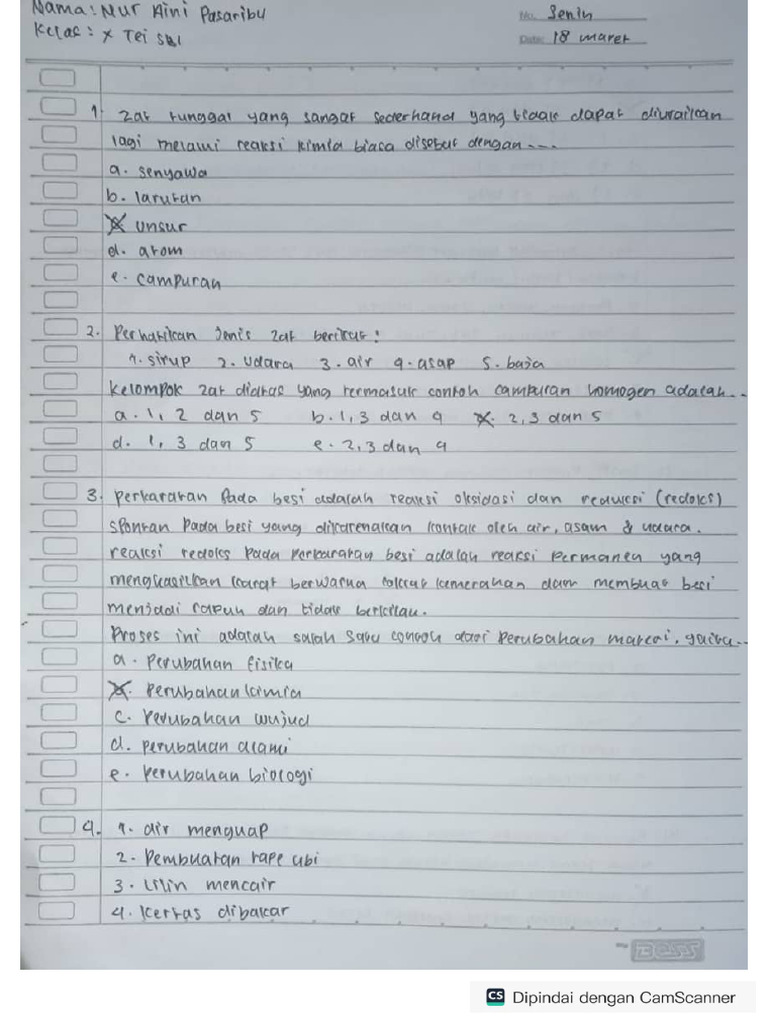 Nama: Nur Aini Pasaribu
Kelas: X Tei SB1
No. Senin
Date: 18 maret
1. Zat tunggal yang sangat sederhana yang tidak dapat diuraikan
lagi melalui reaksi kimia biasa disebut dengan ...
a. senyawa
b. larutan
unsur
d. atom
e. campuran
2. Perhatikan Jenis zat berikut:
1. sirup 2. Udara 3. air 4. asap 5. baja
Kelompok zat diatas yang termasuk contoh campuran homogen adalah...
a. 1, 2 dan 5 b. 1, 3 dan 4 2, 3 dan 5
d. 1, 3 dan 5 e. 2, 3 dan 4
3. Perkaratan Pada besi adalah reaksi oksidasi dan reduksi (redoks)
spontan Pada besi yang dikarenakan kontak oleh air, asam & udara.
reaksi redoks Pada Perkaratan besi adalah reaksi Permanen yang
menghasilkan karat berwarna coklat kemerahan dan membuat besi
menjadi rapuh dan tidak berkilau.
Proses ini adalah salah satu contoh dari Perubahan materi, yaitu..
a. Perubahan fisika
Perubahan kimia
c. Perubahan wujud
d. perubahan alami
e. Perubahan biologi
4. 1. air menguap
2. Pembuatan tape ubi
3. Lilin mencair
4. Kertas dibakar
BOSS
CS Dipindai dengan CamScanner